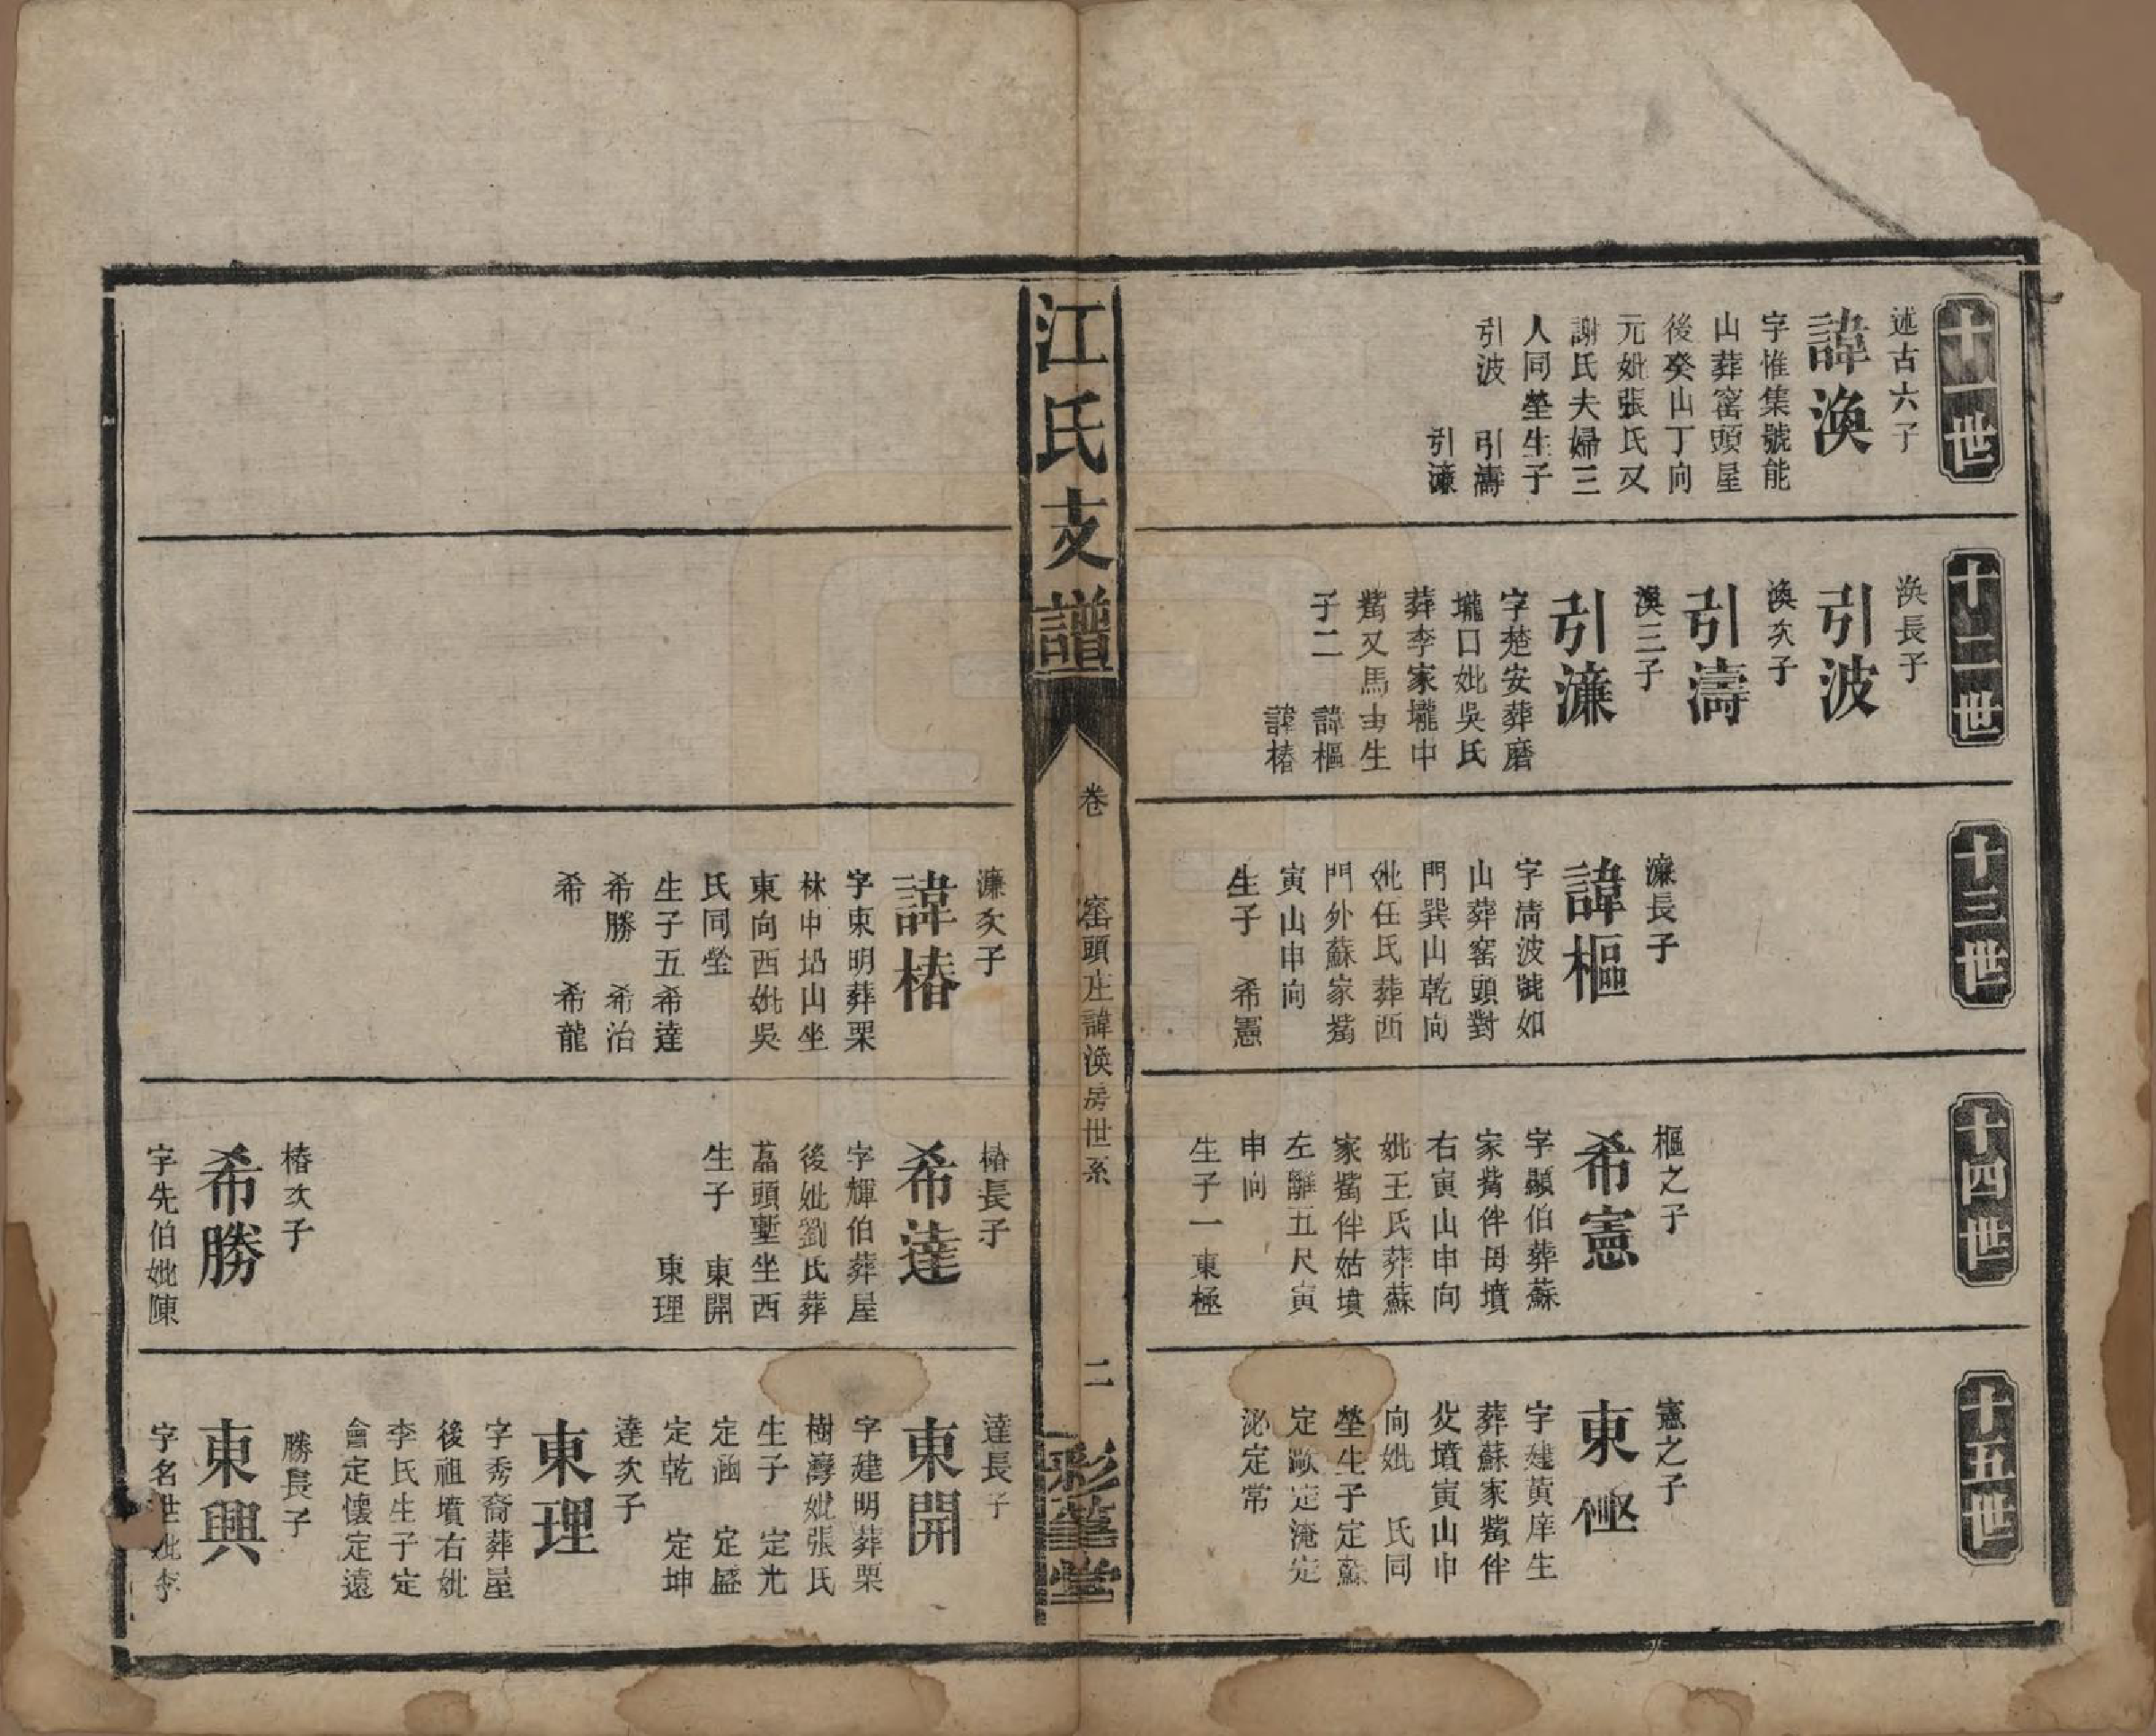 十一世
述古六子
諱渙
字惟集號能
山葬窑頭屋
後癸山丁向
元妣張氏又
謝氏夫婦三
人同塋生子
引波　引濤
引濂
十二世
渙長子
引波
渙次子
引濤
渙三子
引濂
字楚安葬磨
壠口妣吳氏
葬李家壠中
嘴又馬士生
子二　諱樞
諱椿
十三世
濂長子
諱樞
字清波號如
山葬窑頭對
門巽山乾向
妣任氏葬西
門外蘇家嘴
寅山申向
生子　希憲
十四世
樞之子
希憲
字顯伯葬蘇
家嘴伴母墳
右寅山申向
妣王氏葬蘇
家嘴伴姑墳
左離五尺寅
申向
生子一東極
十五世
憲之子
東極
字建黃庠生
葬蘇家嘴伴
父墳寅山申
向妣　氏同
塋生子定蘇
定歐定淹定
泌定常
江氏支譜
卷
窑頭庄諱渙房世系
二
彩筆堂
濂次子
諱椿
字東明葬栗
林中坮山坐
東向西妣吳
氏同塋
生子五希達
希勝　希治
希　希龍
椿長子
希達
字輝伯葬屋
後妣劉氏葬
荔頭塹坐西
生子　東開
東理
椿次子
希勝
字先伯妣陳
達長子
東開
字建明葬栗
樹灣妣張氏
生子　定光
定涵　定盛
定乾　定坤
達次子
東理
字秀裔葬屋
後祖墳右妣
李氏生子定
會定懷定遠
勝長子
東興
字名世妣李